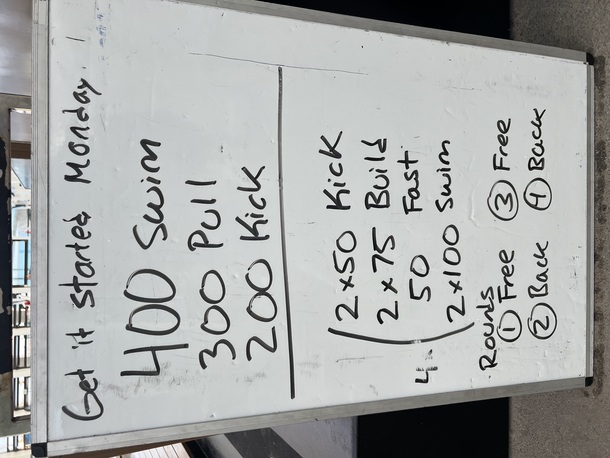 Get it started Monday!
400 Swim
300 Pull
200 Kick
2 x 50 Kick
2 x 75 Build
50 Fast
2 x 100 Swim
4
Rounds
① Free ③ Free
② Back ④ Back